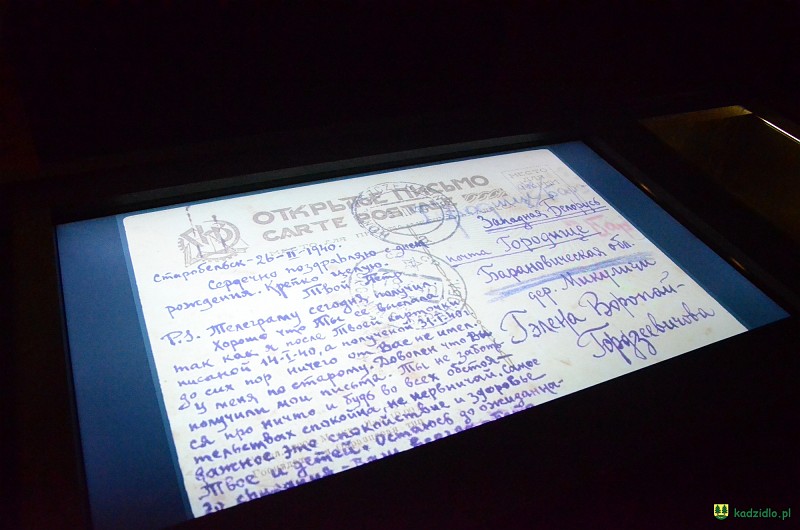 ОТКРЫТОЕ ПИСЬМО
CARTE POSTALE
Старобельск-26-II-1940.
Сердечно поздравляю с днем
рождения. Крепко целую-
Твой Петр
P.S. Телеграму сегодня получил
Хорошо что Ты ее выслала
так как я после Твоей карточки
писаной 14-I-40, а полученой 31-I-40г.
до сих пор ничего от Вас не имел.
у меня по старому. Доволен что Вы
получили мои письма. Ты не заботь-
ся про ничто и будь во всех обстоя-
тельствах спокойна, не нервничай. Самое
важное это спокойствие и здоровье
Твое и детей. Остаюсь до ожиданна-
го
Западная Белорусь
почта Городище
Барановическая обл.
дер. Микуличи
Гэлена Воропай-
Гордзеевичова
kadzidlo.pl